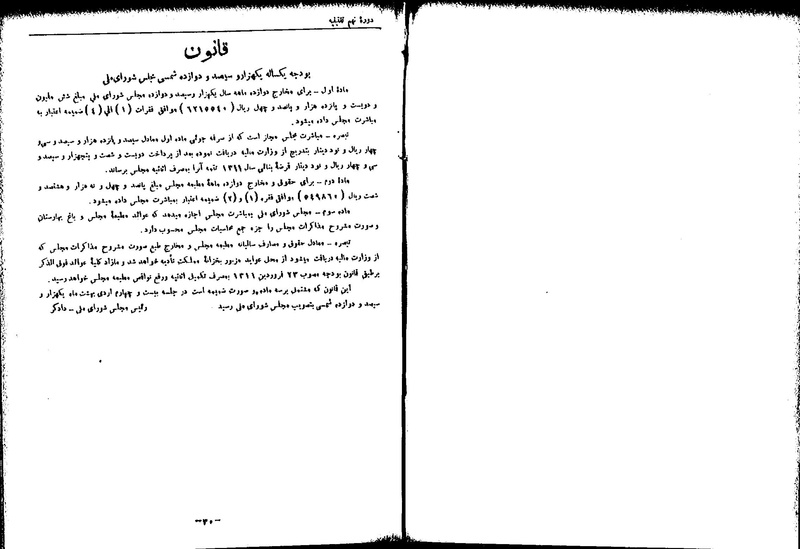 دورهٔ نهم تقنینیه
قانون
بودجه یکساله یکهزارو سیصد و دوازده شمسی مجلس شورای‌ملی
مادهٔ اول – برای مخارج دوازده ماهه سال یکهزار وسیصد و دوازده مجلس شورای ملی مبلغ شش ملیون
و دویست و پانزده هزار و پانصد و چهل ریال (٦٢١٥٥٤٠) موافق فقرات (١) الی (٤) ضمیمه اعتبار به
مباشرت مجلس داده میشود.
تبصره – مباشرت مجلس مجاز است که از صرفه جوئی ماده اول معادل سیصد و پانزده هزار و سیصد و سی‌و
چهار ریال و نود دینار بتدریج از وزارت مالیه دریافت نموده بعد از پرداخت دویست و شصت و پنجهزار و سیصد و
سی و چهار ریال و نود دینار قرضهٔ بنائی سال ١٣١١ تتمه آنرا بمصرف اثاثیه مجلس برساند.
مادهٔ دوم – برای حقوق و مخارج دوازده ماههٔ مطبعه مجلس مبلغ پانصد و چهل و نه هزار و هشتصد و
شصت ریال (٥٤٩٨٦٠) موافق فقره (١) و (٢) ضمیمه اعتبار بمباشرت مجلس داده میشود.
ماده سوم – مجلس شورای ملی بمباشرت مجلس اجازه میدهد که عوائد مطبعهٔ مجلس و باغ بهارستان
و صورت مشروح مذاکرات مجلس را جزء جمع محاسبات مجلس محسوب دارد.
تبصره – معادل حقوق و مصارف سالیانه مطبعه مجلس و مخارج طبع صورت مشروح مذاکرات مجلس که
از وزارت مالیه دریافت میشود از محل عواید مزبور بخزانهٔ مملکت تأدیه خواهد شد و مازاد کلیهٔ عوائد فوق الذکر
برطبق قانون بودجه مصوب ٢٣ فروردین ١٣١١ بمصرف تکمیل اثاثیه ورفع نواقص مطبعه مجلس خواهد رسید.
این قانون که مشتمل برسه ماده و صورت ضمیمه است در جلسه بیست و چهارم اردی بهشت ماه یکهزار و
سیصد و دوازده شمسی بتصویب مجلس شورای ملی رسید رئیس مجلس شورای ملی – دادگر
-٣٠-